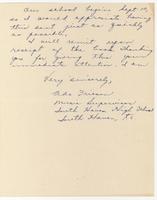 Our school begins Sept 10,
so I would appreciate having
this sent just as quickly
as possible.
I will remit upon
receipt of the book. Thanking
you for giving this your
immediate attention, I am
Very sincerely,
Ada Friesen
Music Supervisor
South Haven High School
South Haven, Ks